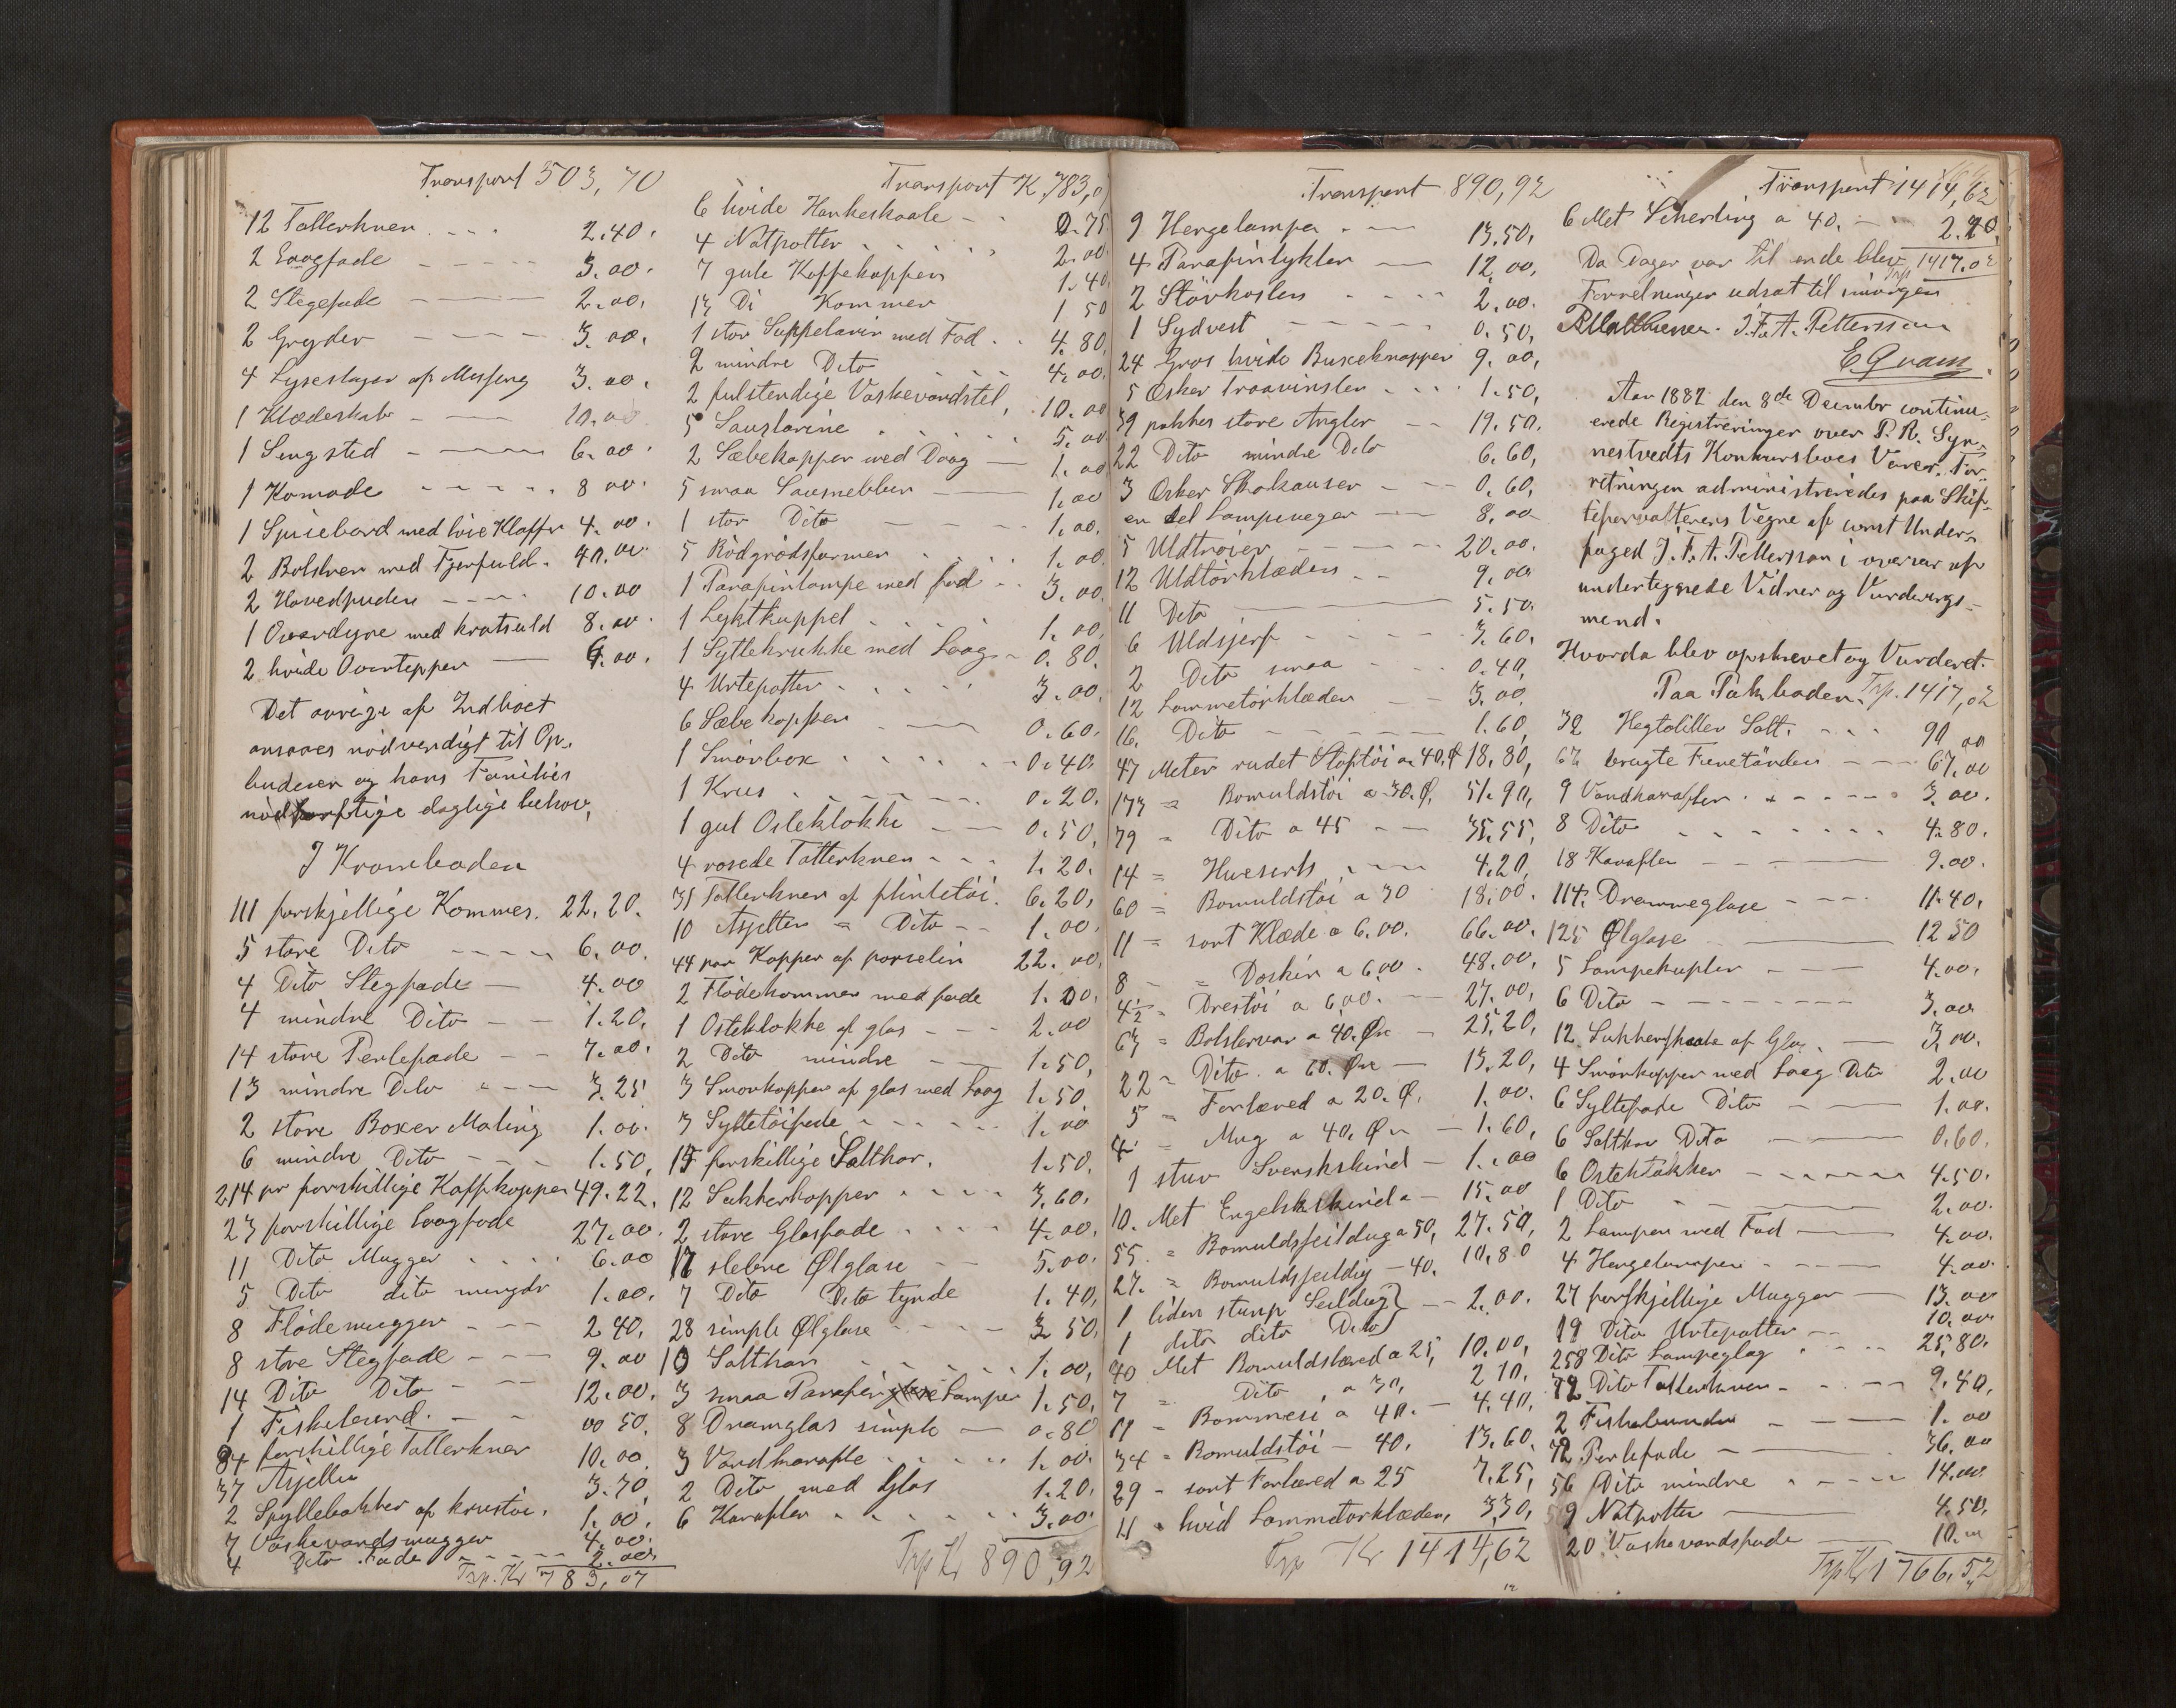 Transport 503,70
12 Tallerkner 2.40.
2 Laagfade 3.00.
2 Stegefade 2.00.
2 Gryder 3.00.
4 Lysestager af Messing 3.00.
1 Klædeskab 10.00
1 Sengsted 6.00.
1 Komode 8 00.
1 Spisebord med love Klapper 4.00.
2 Bolstrer med Fjerfuld. 40.00.
2 Hovedpuder 10.00
1 Overdyne med kratuld 8.00.
2 hvide Overtepper 6.00.
Det øvrige af Indboet
ansaaes nödvendigt til Op-
buderen og hans Families
nödtørftige daglige behov,
I Kramboden
111 forskjellige Kommer. 22.20.
5 store Dito 6.00.
4 Dito Stegfade 4.00
4 mindre Dito 1.20.
14 store Perlefade 7.00.
13 mindre Dito 3.25
2 store Boxer Maling 1.00.
6 mindre Dito 1.50.
214 pr forskillige Kaffkopper 49.22.
23 forskillige Laagfade 27.00.
11 Dito Mugger 6.00
5 Dito dito mindre 1.00.
8 Flödemugger 2 40.
8 store Stegfade 9.00
14 Dito Dito 12.00.
1 Fiskebund. 00 50.
84 forskillige Tallerkner 10.00
37 Asjetter 3.70
2 Spyttebakker af krustøi. 1.00.
7 Vaskevandsmugger 4.00.
4 Dito Fade 2.00.
Trp. Kr 783,07
Transport K. 783,0
6 hvide Hankeskaale 0.75
4 Natpotter 2.00
7 gule Kaffekopper 1.40
13 Di Kommer 1 50
1 stor Suppeterin med Fad 4.80
2 mindre Dito 4.00
2 fulstendige Vaskevandstel, 10.00
5 Sausterine 5.00
2 Sæbekopper med Laag 1.00
5 smaa Sausnebber 1.00
1 stor Dito 1.00.
5 Rödgrödsformer 1.00
1 Parafinlampe med fod 3.00.
1 Lyktkuppel 1.00.
1 Syltekrukke med Laag 0.80.
4 Urtepotter 3.00.
6 Sæbekopper 0.60.
1 Smörbox 0.40.
1 Krus 0.20.
1 gul Osteklokke 0.50.
4 rosede Tallerkner 1.20.
31 Tallerkner af flintetöi. 6.20,
10 Asjetter = Dito 1.00.
44 par Kopper af porselin 22.00.
2 Flödekommer med fade 1.20.
1 Osteklokke af glas 2.00
2 Dito mindre 1.50,
3 Smørkopper af glas med Laag 1.50
3 Syltetöifade 1.00
15 forskillige Saltkar. 1.50.
12 Sukkerkopper 3.60.
2 store Glasfade 4.00.
12 slebne Ølglase 5.00.
7 Dito Dito tynde 1.40,
28 simple Ølglase 3 50.
10 Saltkar 1.00,
3 smaa Parafin Lamper 1.50,
8 Dramglas simple 0.80
3 Vandkarafle 1.00.
2 Dito med Glas 1.20.
6 Karafler 3.00.
Trp Kr 890,92
Transport 890,92
9 Hengelamper 13.50,
4 Parafinlykter 12.00,
2 Støvkoster 2.00.
1 Sydvest 0.50,
24 Gros hvide Buxeknapper 9.00,
5 Æsker Traavinsler 1.50,
39 pakker store Angler 19.50.
22 Dito mindre Dito 6.60,
3 Æsker Skokauser 0.60,
en del Lampeveger 8.00
5 Uldtrøier 20.00.
12 Uldtörklæder 9.00
11 Dito 5.50.
6 Uldsjerf 3.60.
2 Dito smaa 0.40,
12 Lommetörklæder 3.00.
16. Dito 1.60
47 Meter rudet Stoftöi a 40.Ø 18.80,
173 = Bomuldstöi a 30.Ø. 51.90,
79 = Dito a 45 35.55,
14 = Hueserts 4.20,
60 = Bomuldstöi a 30 18.00.
11 = sort Klæde a 6.00. 66.00.
8 = Doskin a 6,00. 48.00,
4½ = Drestöi a 6,00. 27.00,
63 = Bolstervar a 40. Øre 25.20,
22 = Dito a 60. Øre 13.20,
5 = Forlæred a 20. Ø. 1.00.
4 = Mug a 40. Øre 1.60,
1 stuv Svenskskind 1.00
10. Met Engelskskind a 15.00
55. = Bomuldsseildug a 50, 27.50,
27. = Bomuldsseildug 40. 10.80
1 liden stump Seildug 2.00.
1 dito dito Dito
40 Met Bomuldslæred a 25, 10.00,
7 = Dito a 30, 2 10,
11 = Bommesi a 40. 4.40,
34 = Bomuldstöi 40. 13.60.
29 = sort Forlæred a 25 7.25,
11 hvid Lommetørklæder, 3,30,
Trp Kr 1414,62
Transport 1414,62
6 Met Scherting a 40. 2.40.
Da Dagen var til ende blev Trp 1417.02
Forretninger udsat til imorgen
J.F.A. Pettersson
E. Qvam
Aar 1882 den 8de Decembr continu-
erede Registreringer over P. R. Syn-
nestvedts Konkursboes Varer. For-
retningen administreredes paa Skif-
teforvalterens Vegne af const Under-
foged J. F. A. Pettersson i overvær af
undertegnede Vidner og Vurderings-
mend.
Hvorda blev opskrevet og Vurderet.
Paa Pakboden. Trp. 1417,02
32 Hegtoliter Salt. 90 00
67 brugte Furetönder 67.00
9 Vandkarafler 3.00.
8 Dito 4.80.
18 Karafler 9.00.
114. Drammeglase 11.40,
125 Ølglase 12 50
5 Lampekupler 4.00,
6 Dito 3.00
12 Sukkerskaale af Glas 3.00.
4 Smörkopper med Laag Dito 2.00
6 Syltefade Dito 1.00.
6 Saltkar Dito 0.60.
6 Osteklokker 4.50.
1 Dito 2.00.
2 Lamper med Fod 4.00.
4 Hengelamper 4.00
27 forskjellige Mugger 13.00
19 Dito Urtepotter 10.00
258 Dito Lampeglas 25.80.
72 Dito Tallerkner 9.40,
2 Fiskebunder 1.00
72 Perlefade 36.00
56 Dito mindre 14.00
9 Natpotter 4.50.
20 Vaskevandsfade 10.00
Trp Kr 1766.52